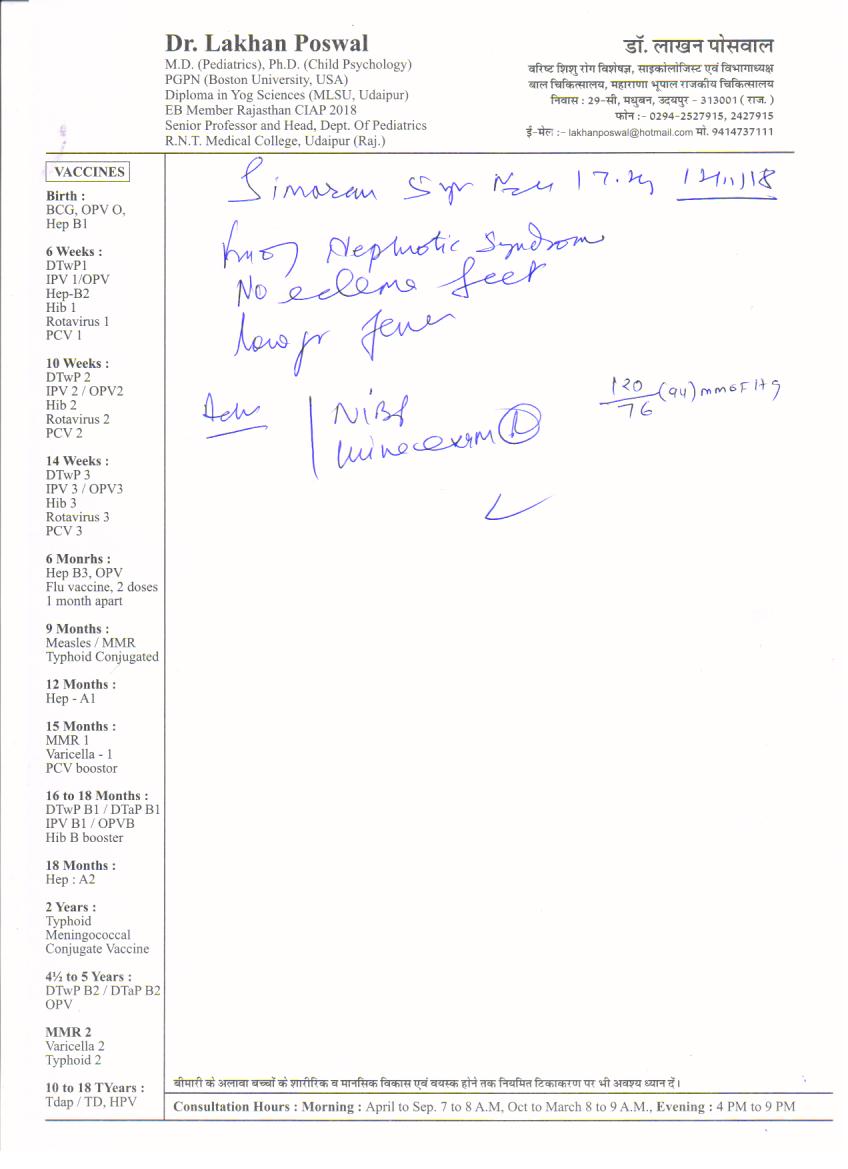 Dr. Lakhan Poswal
M.D. (Pediatrics), Ph.D. (Child Psychology)
PGPN (Boston University, USA)
Diploma in Yog Sciences (MLSU, Udaipur)
EB Member Rajasthan CIAP 2018
Senior Professor and Head, Dept. Of Pediatrics
R.N.T. Medical College, Udaipur (Raj.)
डॉ. लाखन पोसवाल
वरिष्ट शिशु रोग विशेषज्ञ, साइकोलोजिस्ट एवं विभागाध्यक्ष
बाल चिकित्सालय, महाराणा भूपाल राजकीय चिकित्सालय
निवास : 29-सी, मधुबन, उदयपुर - 313001 ( राज. )
फोन :- 0294-2527915, 2427915
ई-मेल :- lakhanposwal@hotmail.com मो. 9414737111
VACCINES
Birth :
BCG, OPV O,
Hep B1
6 Weeks :
DTwP1
IPV 1/OPV
Hep-B2
Hib 1
Rotavirus 1
PCV 1
10 Weeks :
DTwP 2
IPV 2 / OPV2
Hib 2
Rotavirus 2
PCV 2
14 Weeks :
DTwP 3
IPV 3 / OPV3
Hib 3
Rotavirus 3
PCV 3
6 Monrhs :
Hep B3, OPV
Flu vaccine, 2 doses
1 month apart
9 Months :
Measles / MMR
Typhoid Conjugated
12 Months :
Hep - A1
15 Months :
MMR 1
Varicella - 1
PCV boostor
16 to 18 Months :
DTwP B1 / DTaP B1
IPV B1 / OPVB
Hib B booster
18 Months :
Hep : A2
2 Years :
Typhoid
Meningococcal
Conjugate Vaccine
4½ to 5 Years :
DTwP B2 / DTaP B2
OPV
MMR 2
Varicella 2
Typhoid 2
10 to 18 TYears :
Tdap / TD, HPV
Simaran 5yr 17.
Nephrotic Syndrom
No edema feet
low gr fever
Adv NIBP
Urine exam
120/76 (94) mm of Hg
बीमारी के अलावा बच्चों के शारीरिक व मानसिक विकास एवं वयस्क होने तक नियमित टिकाकरण पर भी अवश्य ध्यान दें।
Consultation Hours : Morning : April to Sep. 7 to 8 A.M, Oct to March 8 to 9 A.M., Evening : 4 PM to 9 PM